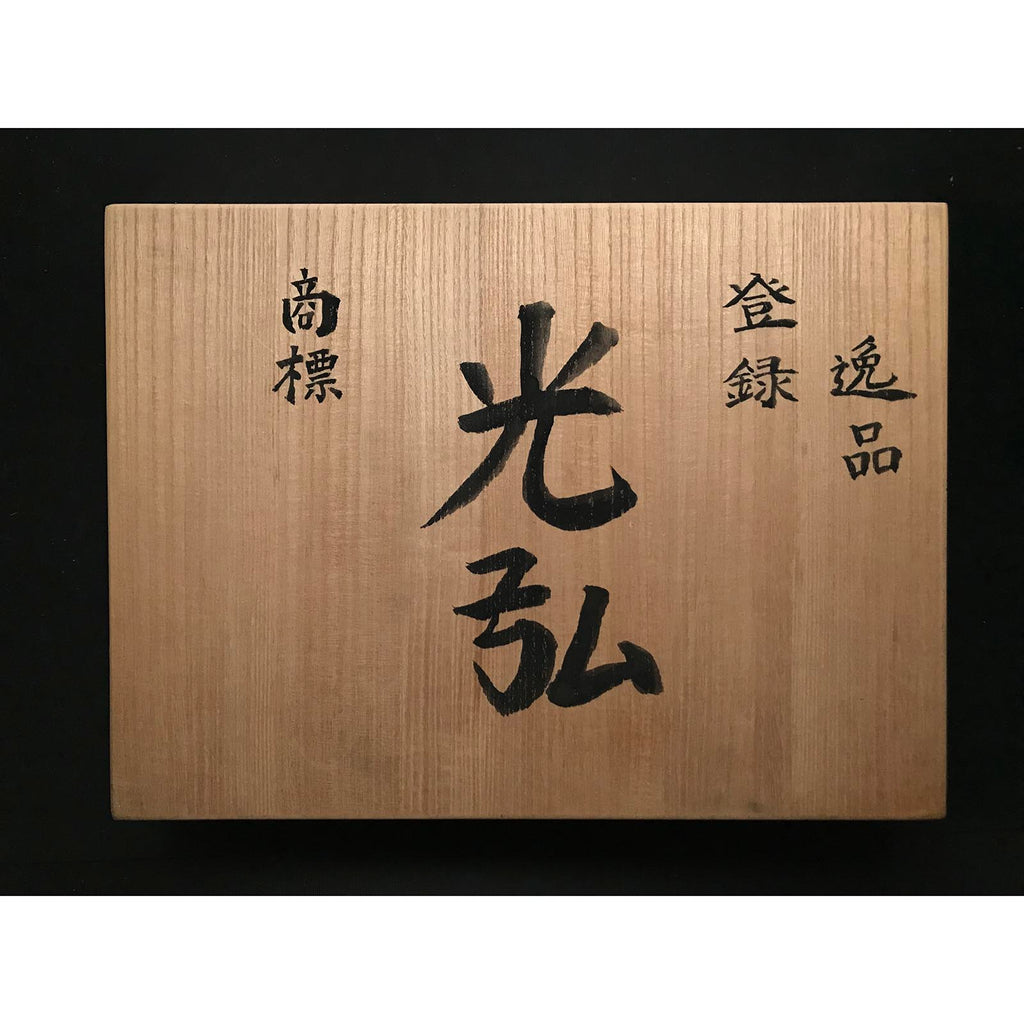 逸品
登録
光弘
商標